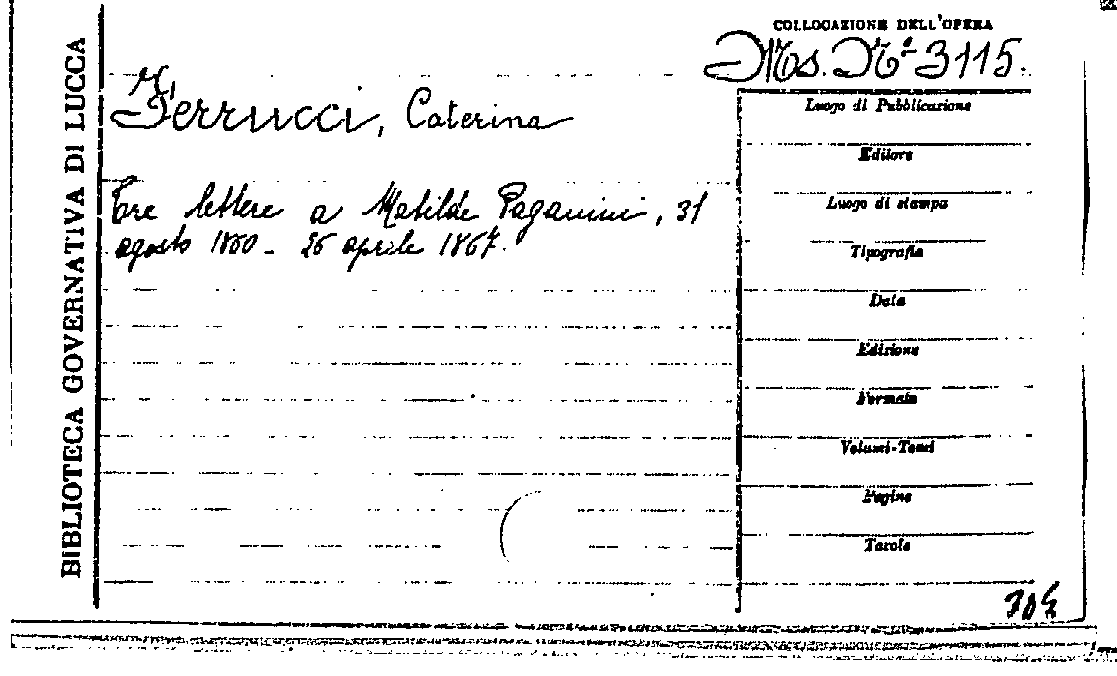 BIBLIOTECA GOVERNATIVA DI LUCCA
COLLOCAZIONE DELL'OPERA
Ms. Nº 3115.
Ferrucci, Caterina
Tre lettere a Matilde Paganini, 31
agosto 1860 - 26 aprile 1867.
Luogo di Pubblicazione
Editore
Luogo di stampa
Tipografia
Data
Edizione
Formato
Volumi-Tomi
Pagine
Tavole